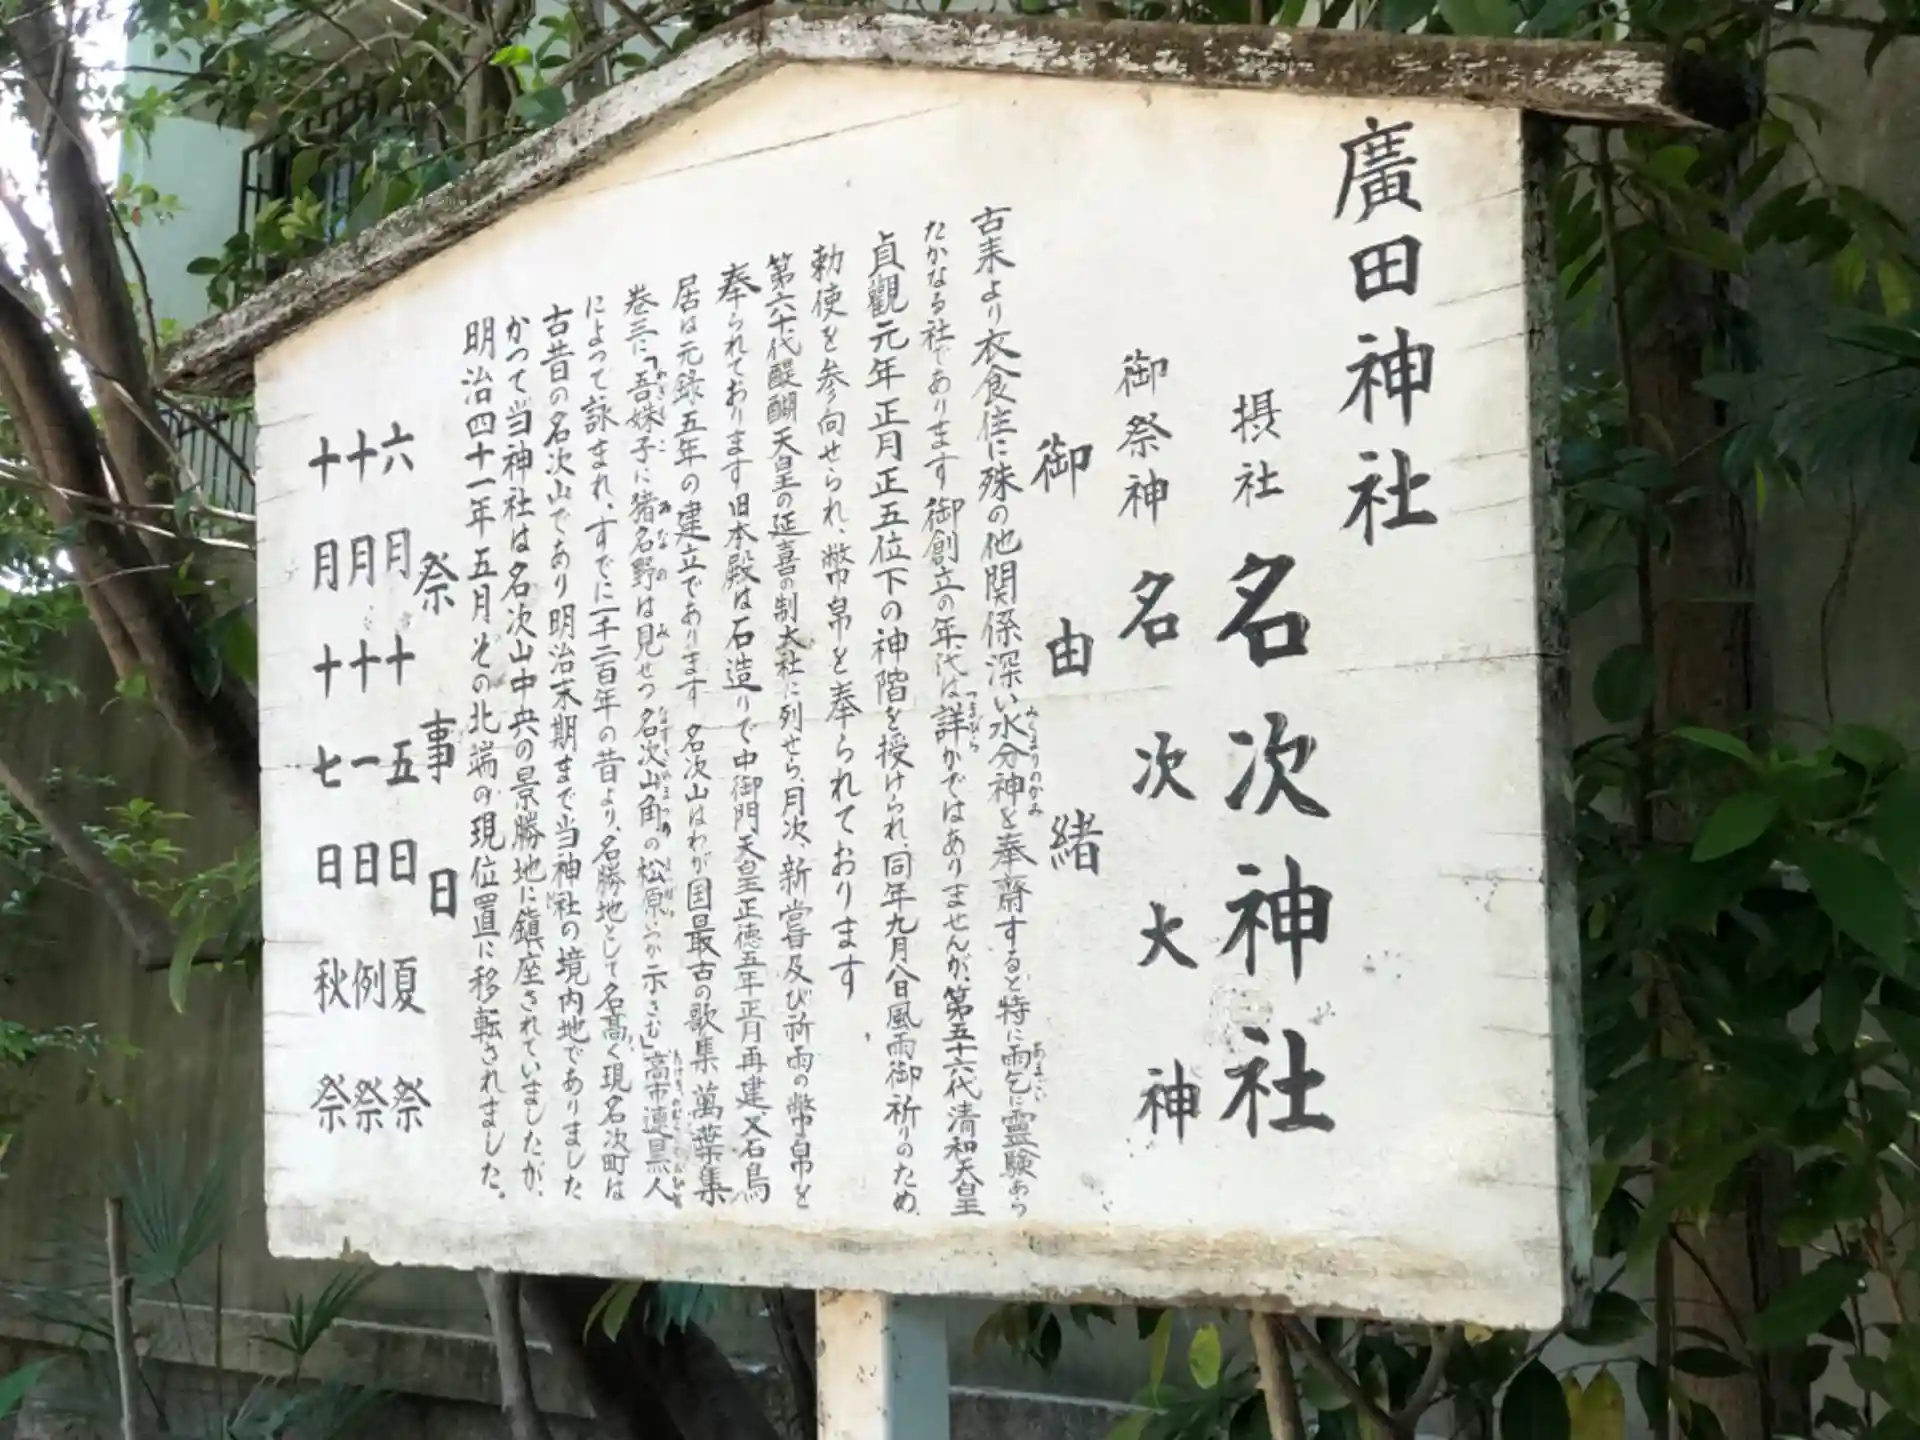 廣田神社
摂社 名次神社
御祭神 名次大神
御由緒
古来より衣食住に殊の他関係深い水分神を奉齋すると特に雨乞に霊験あら
たかなる社であります 御創立の年代は詳かではありませんが、第五十六代清和天皇
貞觀元年正月正五位下の神階を授けられ、同年九月八日風雨御祈りのため、
勅使を参向せられ、幣帛を奉られております
第六十代醍醐天皇の延喜の制大社に列せら、月次、新嘗及び祈雨の幣帛を
奉られております 旧本殿は石造りで中御門天皇正徳五年正月再建 又石鳥
居は元録五年の建立であります 名次山はわが国最古の歌集 萬葉集
巻三に「吾妹子に猪名野は見せつ名次山角の松原いつか示さむ」高市連黒人
によって詠まれ、すでに一千二百年の昔より、名勝地として名高く現名次町は
古昔の名次山であり明治末期まで当神社の境内地でありました
かつて当神社は名次山中央の景勝地に鎮座されていましたが、
明治四十一年五月その北端の現位置に移転されました。
祭事日
六月十五日 夏祭
十月十一日 例祭
十月十七日 秋祭